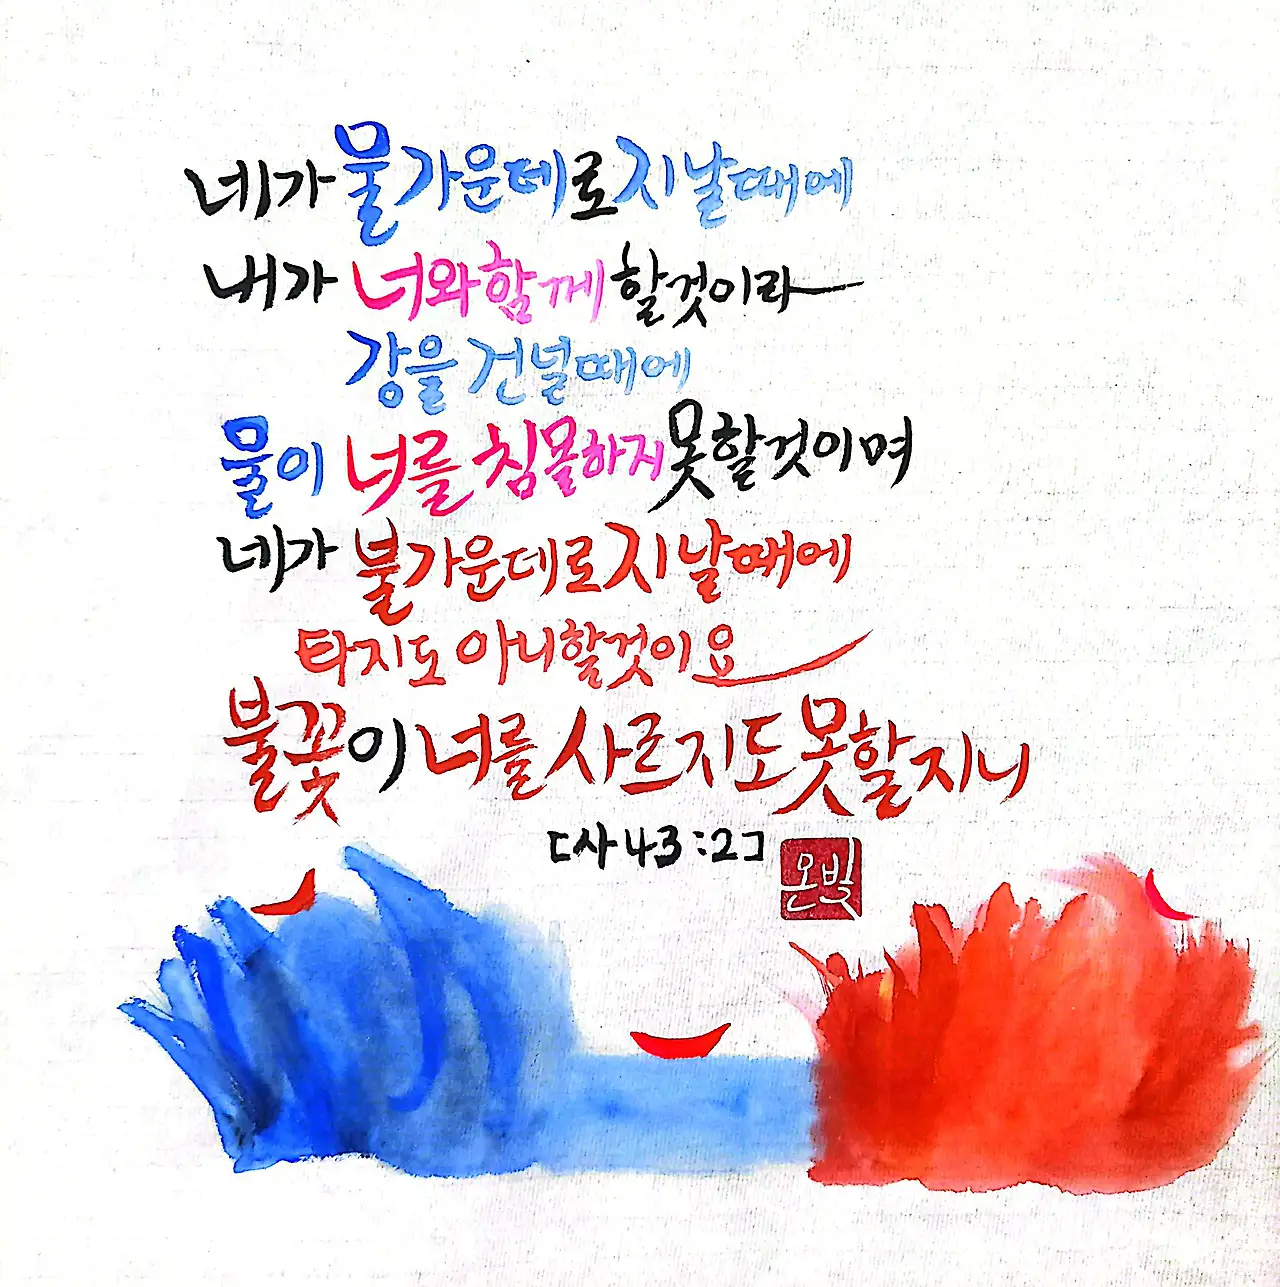 네가 물 가운데로 지날 때에
내가 너와 함께 할 것이라
강을 건널 때에
물이 너를 침몰하지 못할 것이며
네가 불 가운데로 지날 때에
타지도 아니할 것이요
불꽃이 너를 사르지도 못할지니
[사 43:2]
온빛